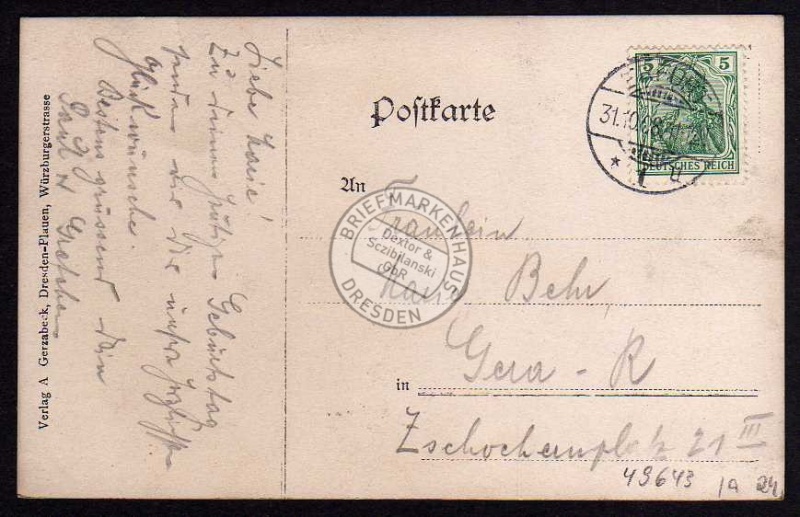 Verlag A Gerzabeck, Dresden-Plauen, Würzburgerstrasse
Liebe Marie!
Zu deinem heutigen Geburtstag
senden dir die
Glückwünsche.
Bestens grüssend dein
Paul u Gretchen
Postkarte
5 5
DEUTSCHES REICH
31.10.
An Fräulein
Marie Behr,
Gera-R
in
Zschochernplatz 21 III
49643 1a 24
BRIEFMARKENHAUS
Dextor &
Sczibilanski
GbR
DRESDEN